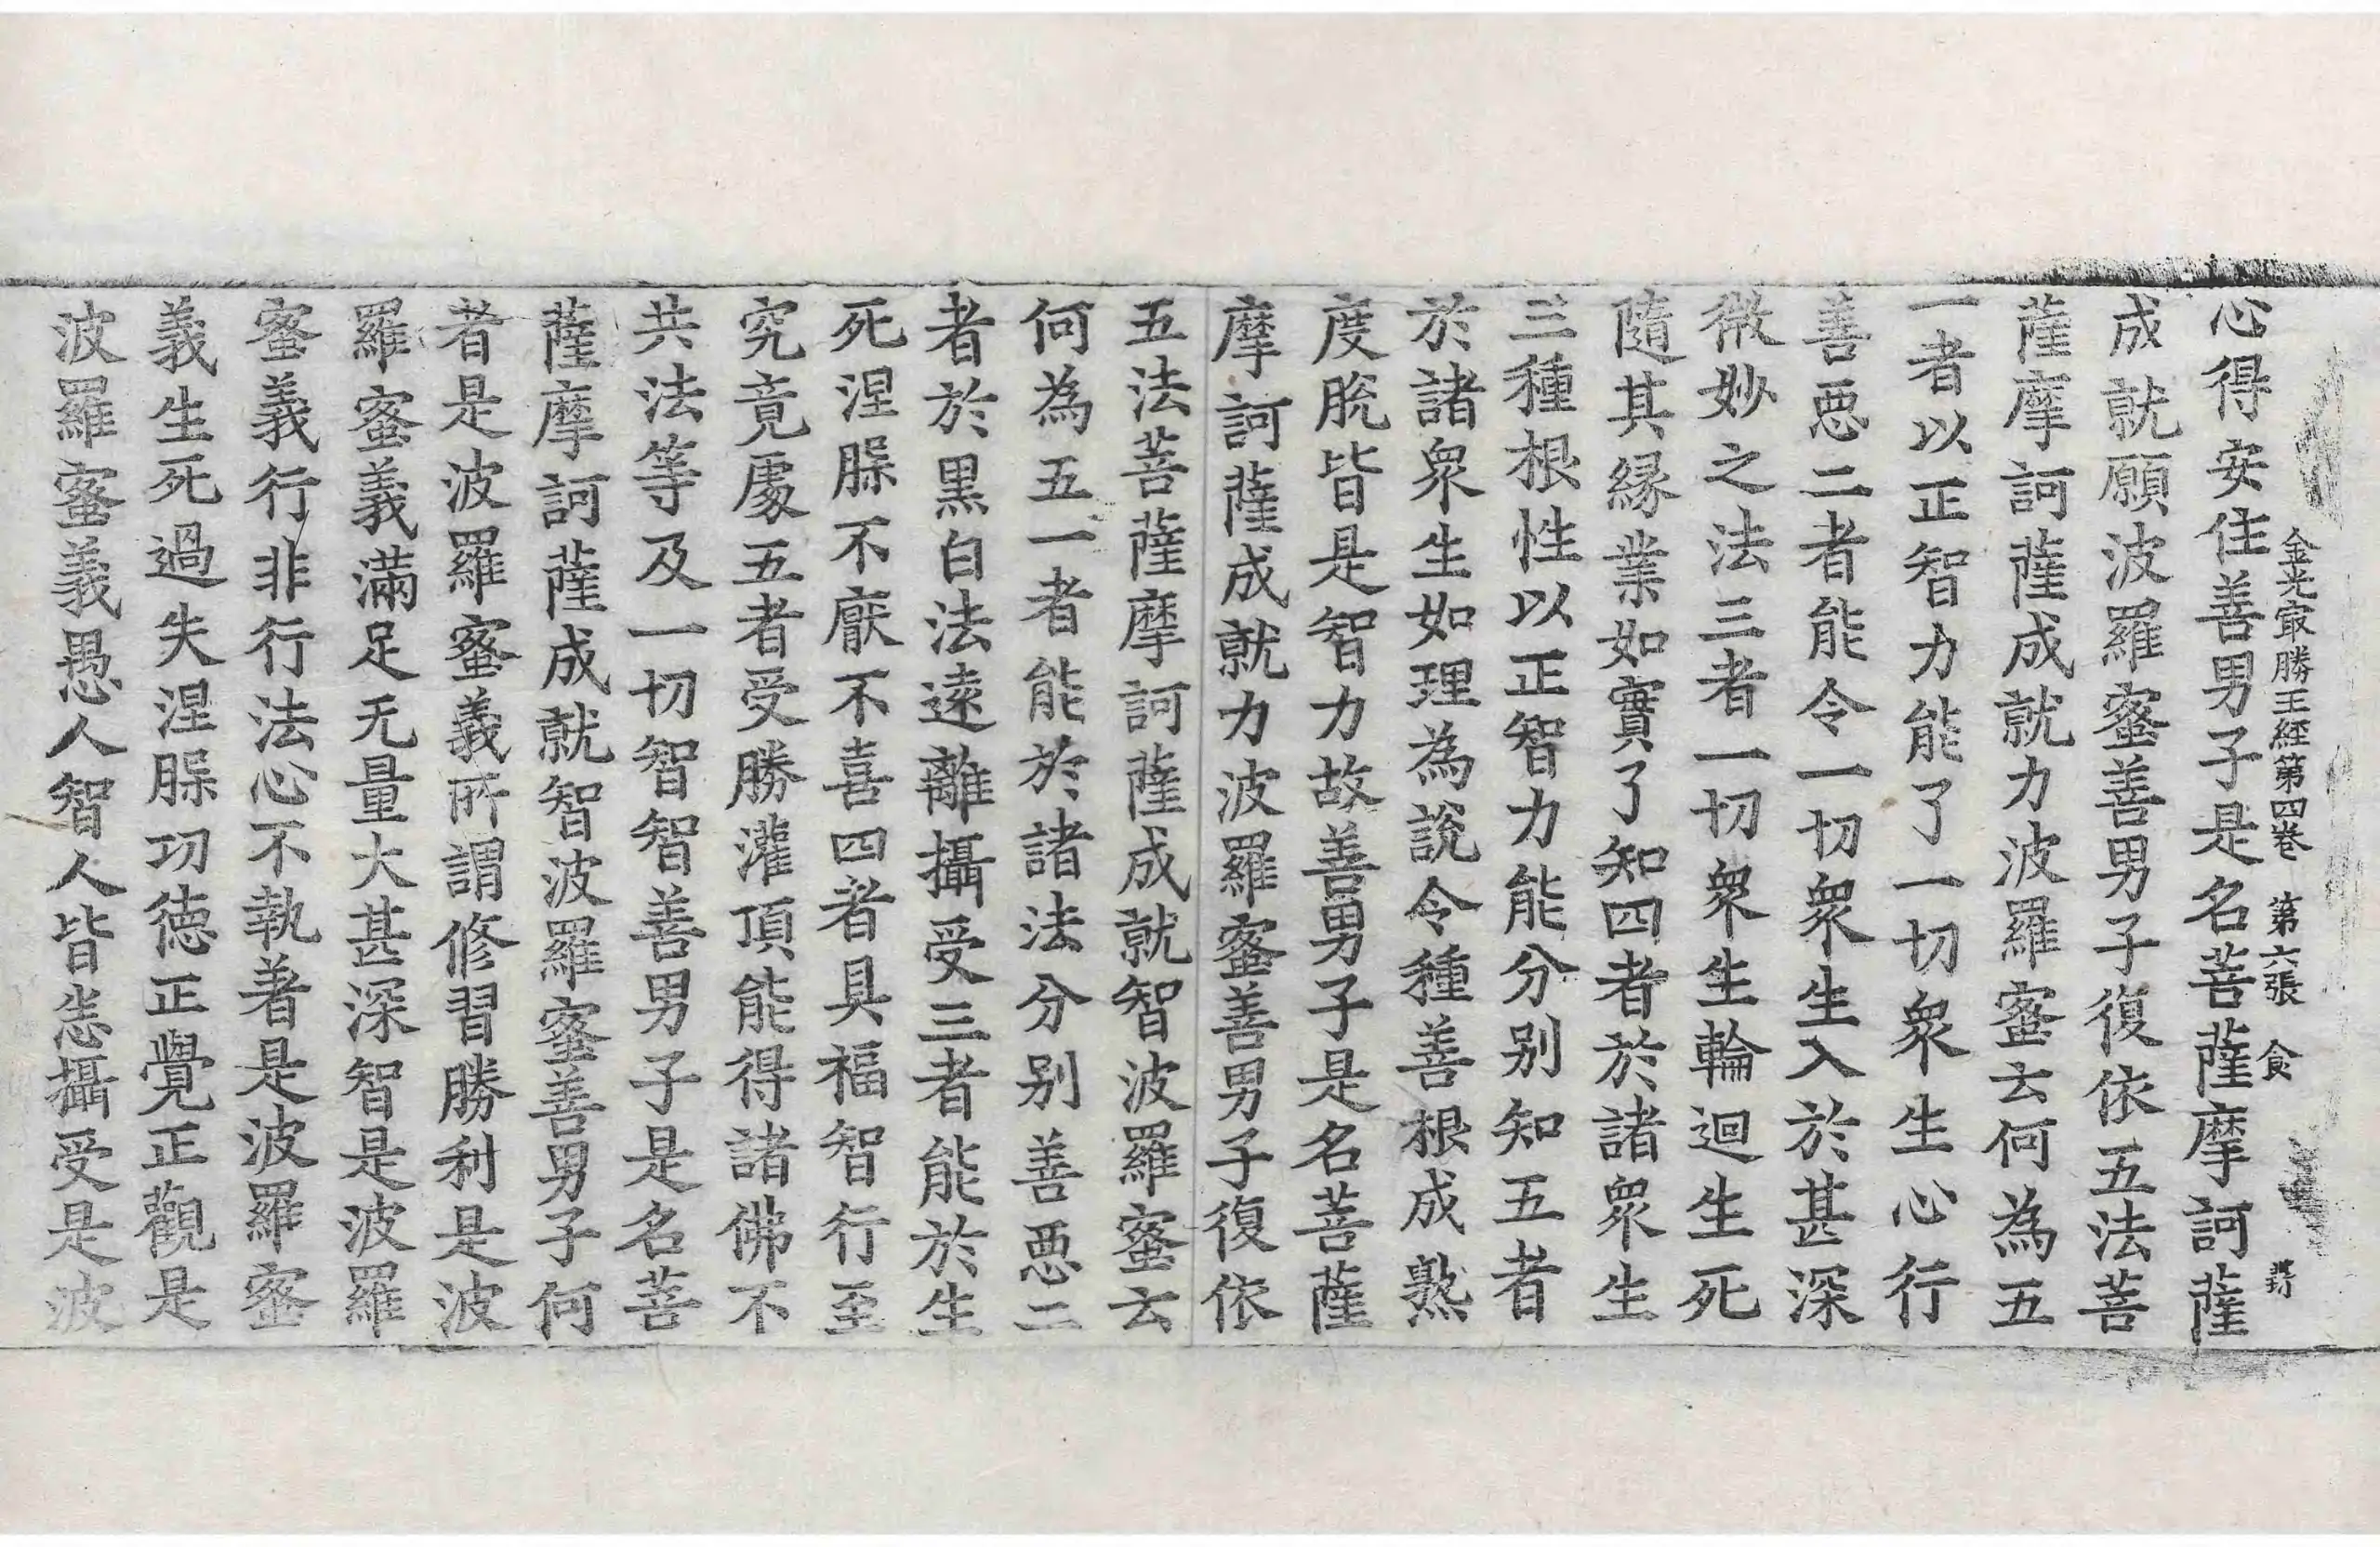 金光㝡勝王經第四卷 第六張 食
心得安住善男子是名菩薩摩訶薩
成就願波羅蜜善男子復依五法菩
薩摩訶薩成就力波羅蜜云何為五
一者以正智力能了一切眾生心行
善惡二者能令一切眾生入於甚深
微妙之法三者一切眾生輪迴生死
隨其緣業如實了知四者於諸眾生
三種根性以正智力能分别知五者
於諸眾生如理為說令種善根成熟
度脫皆是智力故善男子是名菩薩
摩訶薩成就力波羅蜜善男子復依
五法菩薩摩訶薩成就智波羅蜜云
何為五一者能於諸法分别善惡二
者於黑白法遠離攝受三者能於生
死涅槃不厭不喜四者具福智行至
究竟處五者受勝灌頂能得諸佛不
共法等及一切智智善男子是名菩
薩摩訶薩成就智波羅蜜善男子何
者是波羅蜜義所謂修習勝利是波
羅蜜義滿足无量大甚深智是波羅
蜜義行非行法心不執著是波羅蜜
義生死過失涅槃功德正覺正觀是
波羅蜜義愚人智人皆悉攝受是波